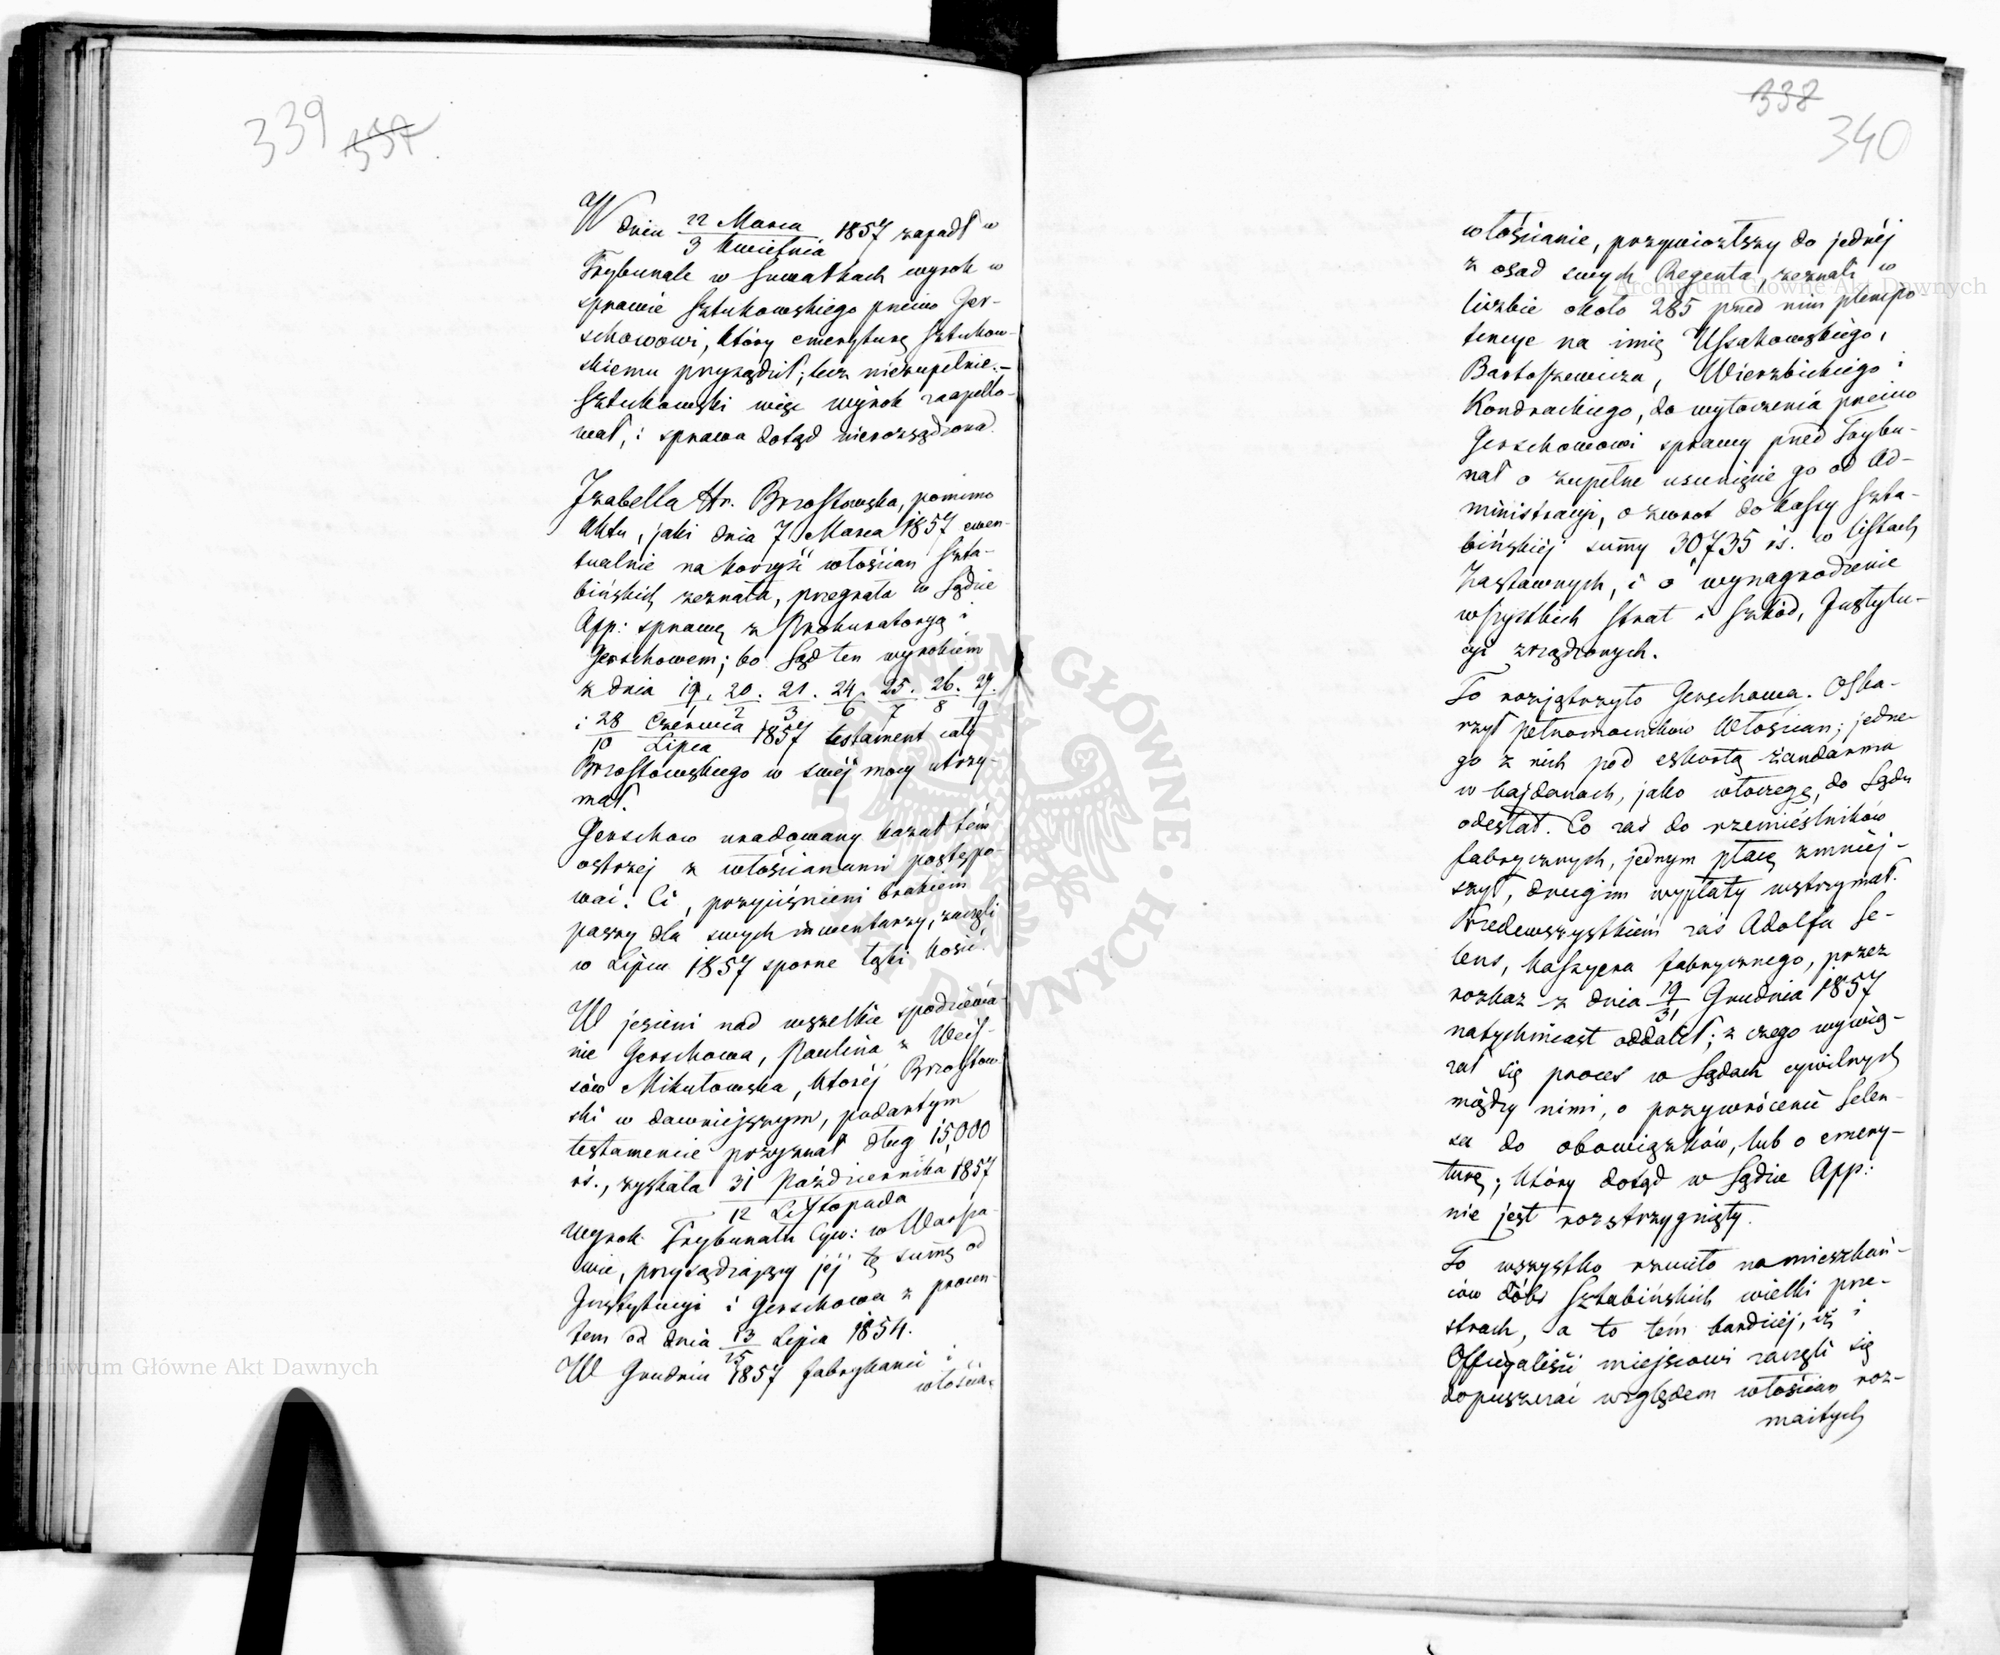 339 337
W dniu 22 Marca / 3 Kwietnia 1857 zapadł w
Trybunale w Suwałkach wyrok w
sprawie Sztukowskiego przeciw Ger-
schowowi, który emeryturę Sztukow-
skiemu przysądził; lecz niezupełnie.–
Sztukowski więc wyrok zaapello-
wał, i sprawa dotąd nierozsądzona.
Izabella Hr. Brzostowska, pomimo
Aktu, jaki dnia 7 Marca 1857 ewen-
tualnie na korzyść włościan Szta-
bińskich zeznała, przegrała w Sądzie
App: sprawę z Prokuratoryą i
Gerschowem; bo Sąd ten wyrokiem
z dnia 19. 20. 21. 24. 25. 26. 27.
/ 1 2 3 6 7 8 9
i 28 Czerwca / 10 Lipca 1857 testament cały
Brzostowskiego w swéj mocy utrzy-
mał.
Gerschow uradowany kazał tém
ostrzej z włościanami postępo-
wać. Ci, przyciśnieni brakiem
paszy dla swych inwentarzy, zaczęli
w Lipcu 1857 sporne łąki kosić.
W jesieni nad wszelkie spodziewa-
nie Gerschowa, Paulina z Weys-
sów Mikułowska, któréj Brzostow-
ski w dawniejszym, podartym
testamencie przyznał dług 15,000
rś., zyskała 31 Października / 12 Listopada 1857
wyrok Trybunału Cyw: w Warsza-
wie, przysądzający jéj tę summę od
Instytucyi i Gerschowa z procen-
tem od dnia 13/25 Lipca 1854.
W Grudniu 1857 fabrykanci i
włościa-
338
340
włościanie, przywiozłszy do jednéj
z osad swych Regenta, zeznali w
liczbie około 285 przed nim plenipo-
tencye na imię Ussakowskiego,
Bartoszewicza, Wierzbickiego i
Kondrackiego, do wytoczenia przeciw
Gerschowowi sprawy przed Trybu-
nał o zupełne usunięcie go od Ad-
ministracyi, o zwrot do kassy Szta-
bińskiéj summy 30735 rś. w listach
Zastawnych, i o wynagrodzenie
wszystkich strat i szkód, Instytu-
cyi zrządzonych.
To rozjątrzyło Gerschowa. Oska-
rżył pełnomocników Włościan; jedne-
go z nich pod eskortą żandarma
w kajdanach, jako włóczęgę, do Sądu
odesłał. Co zaś do rzemieślników
fabrycznych, jednym płacę zmniej-
szył, drugim wypłaty wstrzymał.
Przedewszystkiém zaś Adolfa Se-
lens, kassyera fabrycznego, przez
rozkaz z dnia 19/31 Grudnia 1857
natychmiast oddalił; z czego wywią-
zał się proces w Sądach cywilnych
między nimi, o przywrócenie Selen-
sa do obowiązków, lub o emery-
turę; który dotąd w Sądzie App:
nie jest rozstrzygnięty.
To wszystko rzuciło na mieszkań-
ców dóbr Sztabińskich wielki prze-
strach, a to tém bardziéj, iż i
Officyaliści miejscowi zaczęli się
dopuszczać względem włościan roz-
maitych
Archiwum Główne Akt Dawnych
Archiwum Główne Akt Dawnych
ARCHIWUM GŁÓWNE AKT DAWNYCH